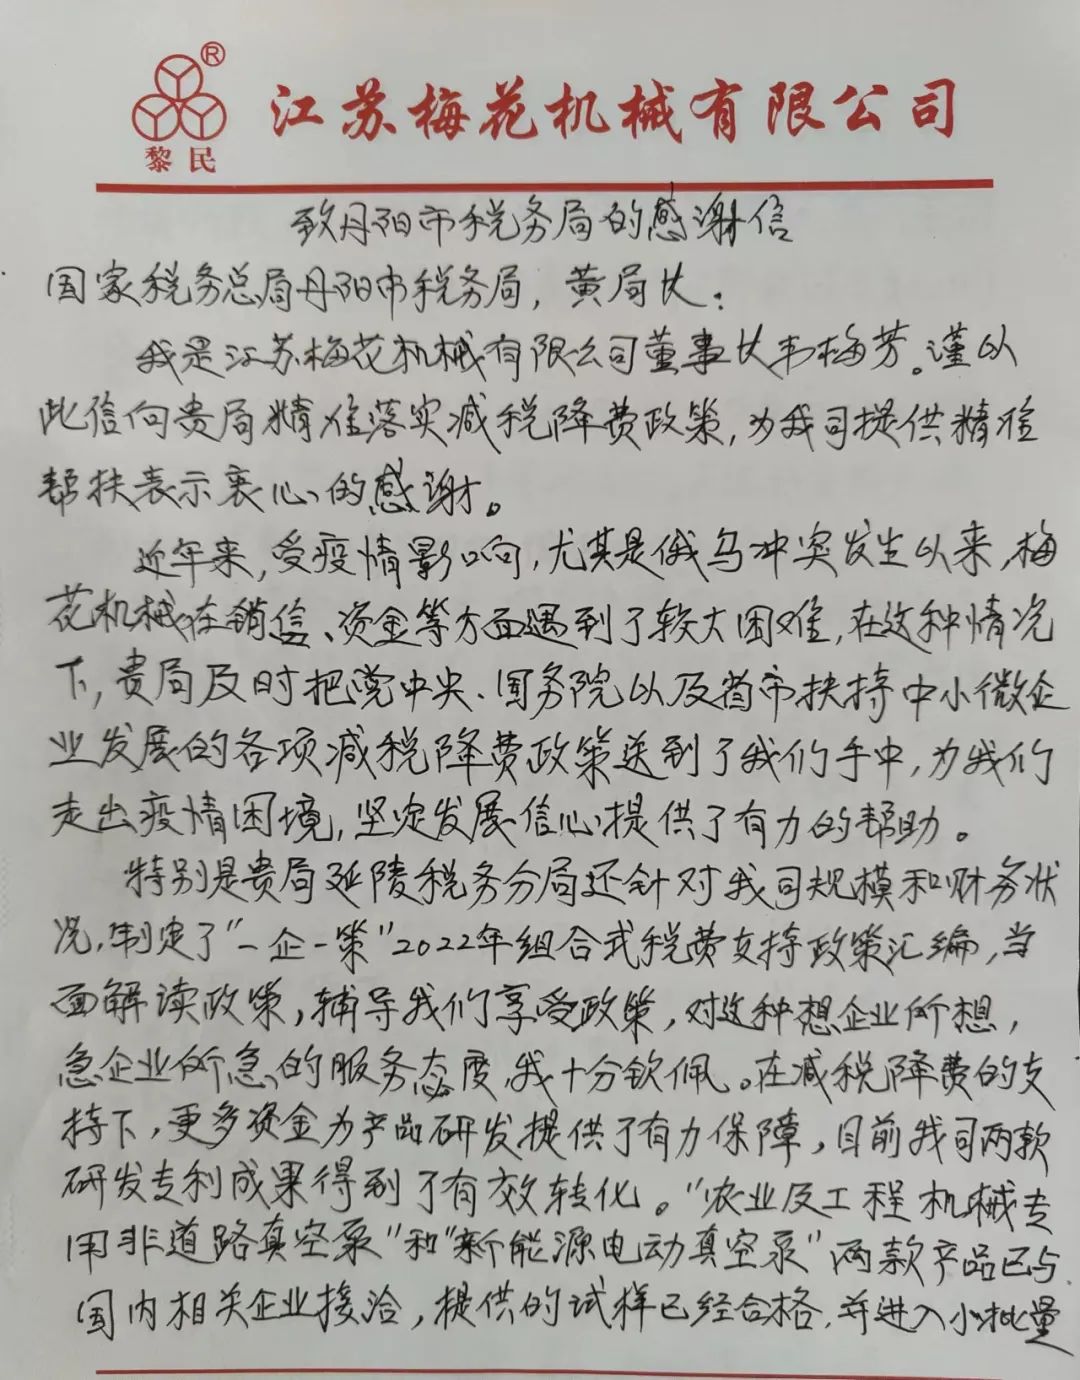 ®
黎民
江苏梅花机械有限公司
致丹阳市税务局的感谢信
国家税务总局丹阳市税务局，黄局长：
我是江苏梅花机械有限公司董事长韦梅芳。谨以
此信向贵局精准落实减税降费政策，为我司提供精准
帮扶表示衷心的感谢。
近年来，受疫情影响，尤其是俄乌冲突发生以来，梅
花机械在销信、资金等方面遇到了较大困难，在这种情况
下，贵局及时把党中央、国务院以及省市扶持中小微企
业发展的各项减税降费政策送到了我们手中，为我们
走出疫情困境，坚定发展信心提供了有力的帮助。
特别是贵局延陵税务分局还针对我司规模和财务状
况，制定了“一企一策”2022年组合式税费支持政策汇编，当
面解读政策，辅导我们享受政策，对这种想企业所想，
急企业所急的服务态度，我十分钦佩。在减税降费的支
持下，更多资金为产品研发提供了有力保障，目前我司两款
研发专利成果得到了有效转化。“农业及工程机械专
用非道路真空泵”和“新能源电动真空泵”两款产品已与
国内相关企业接洽，提供的试样已经合格，并进入小批量